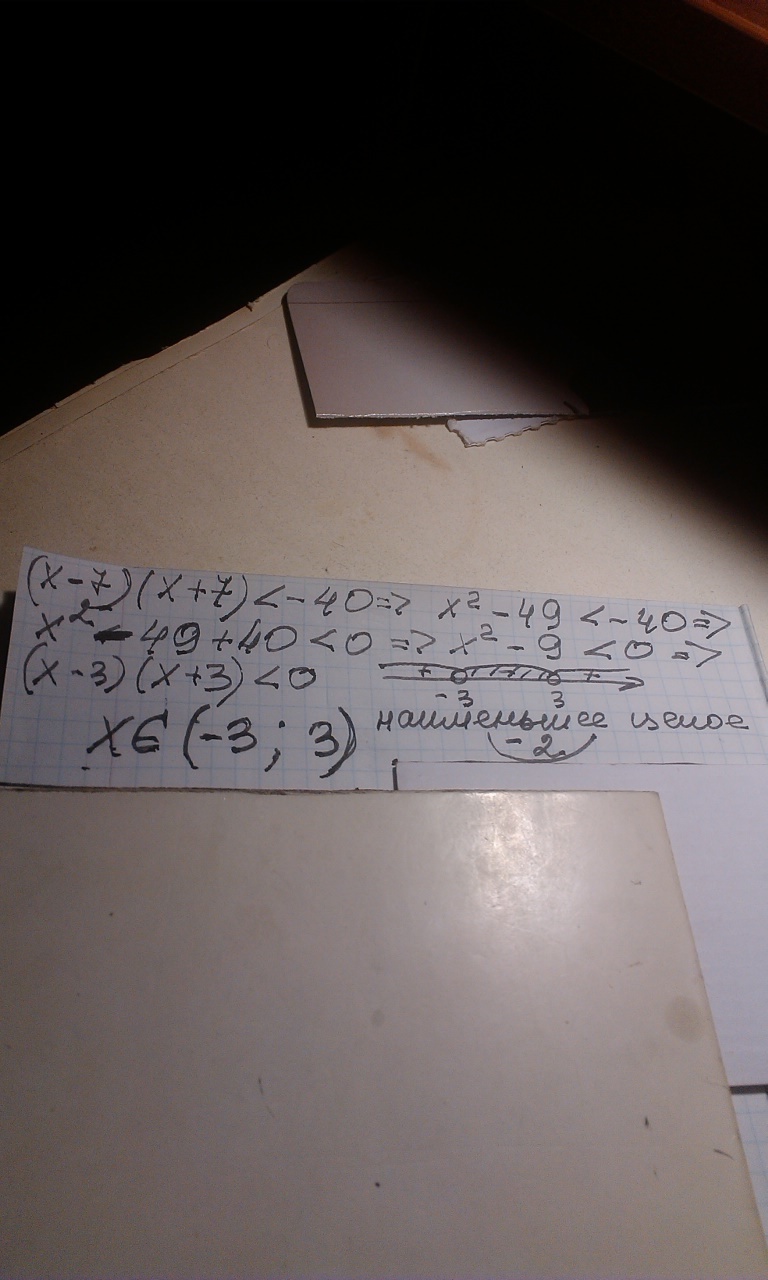 (x-7)(x+7)<-40=> x²-49<-40=>
x²-49+40<0=>x²-9<0=>
(x-3)(x+3)<0
-3 3
x∈(-3; 3) наименьшее целое
-2